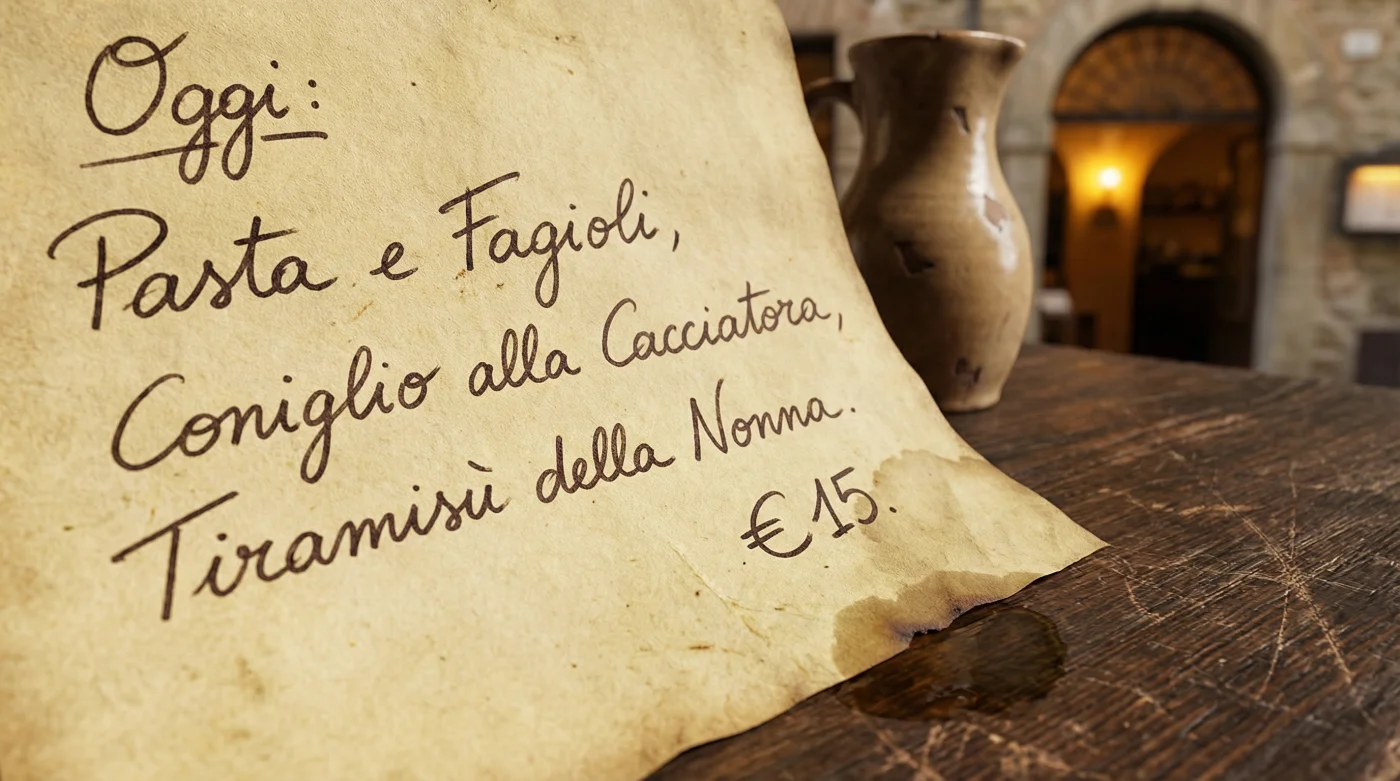 Oggi:
Pasta e Fagioli,
Coniglio alla Cacciatora,
Tiramisù della Nonna.
€15.